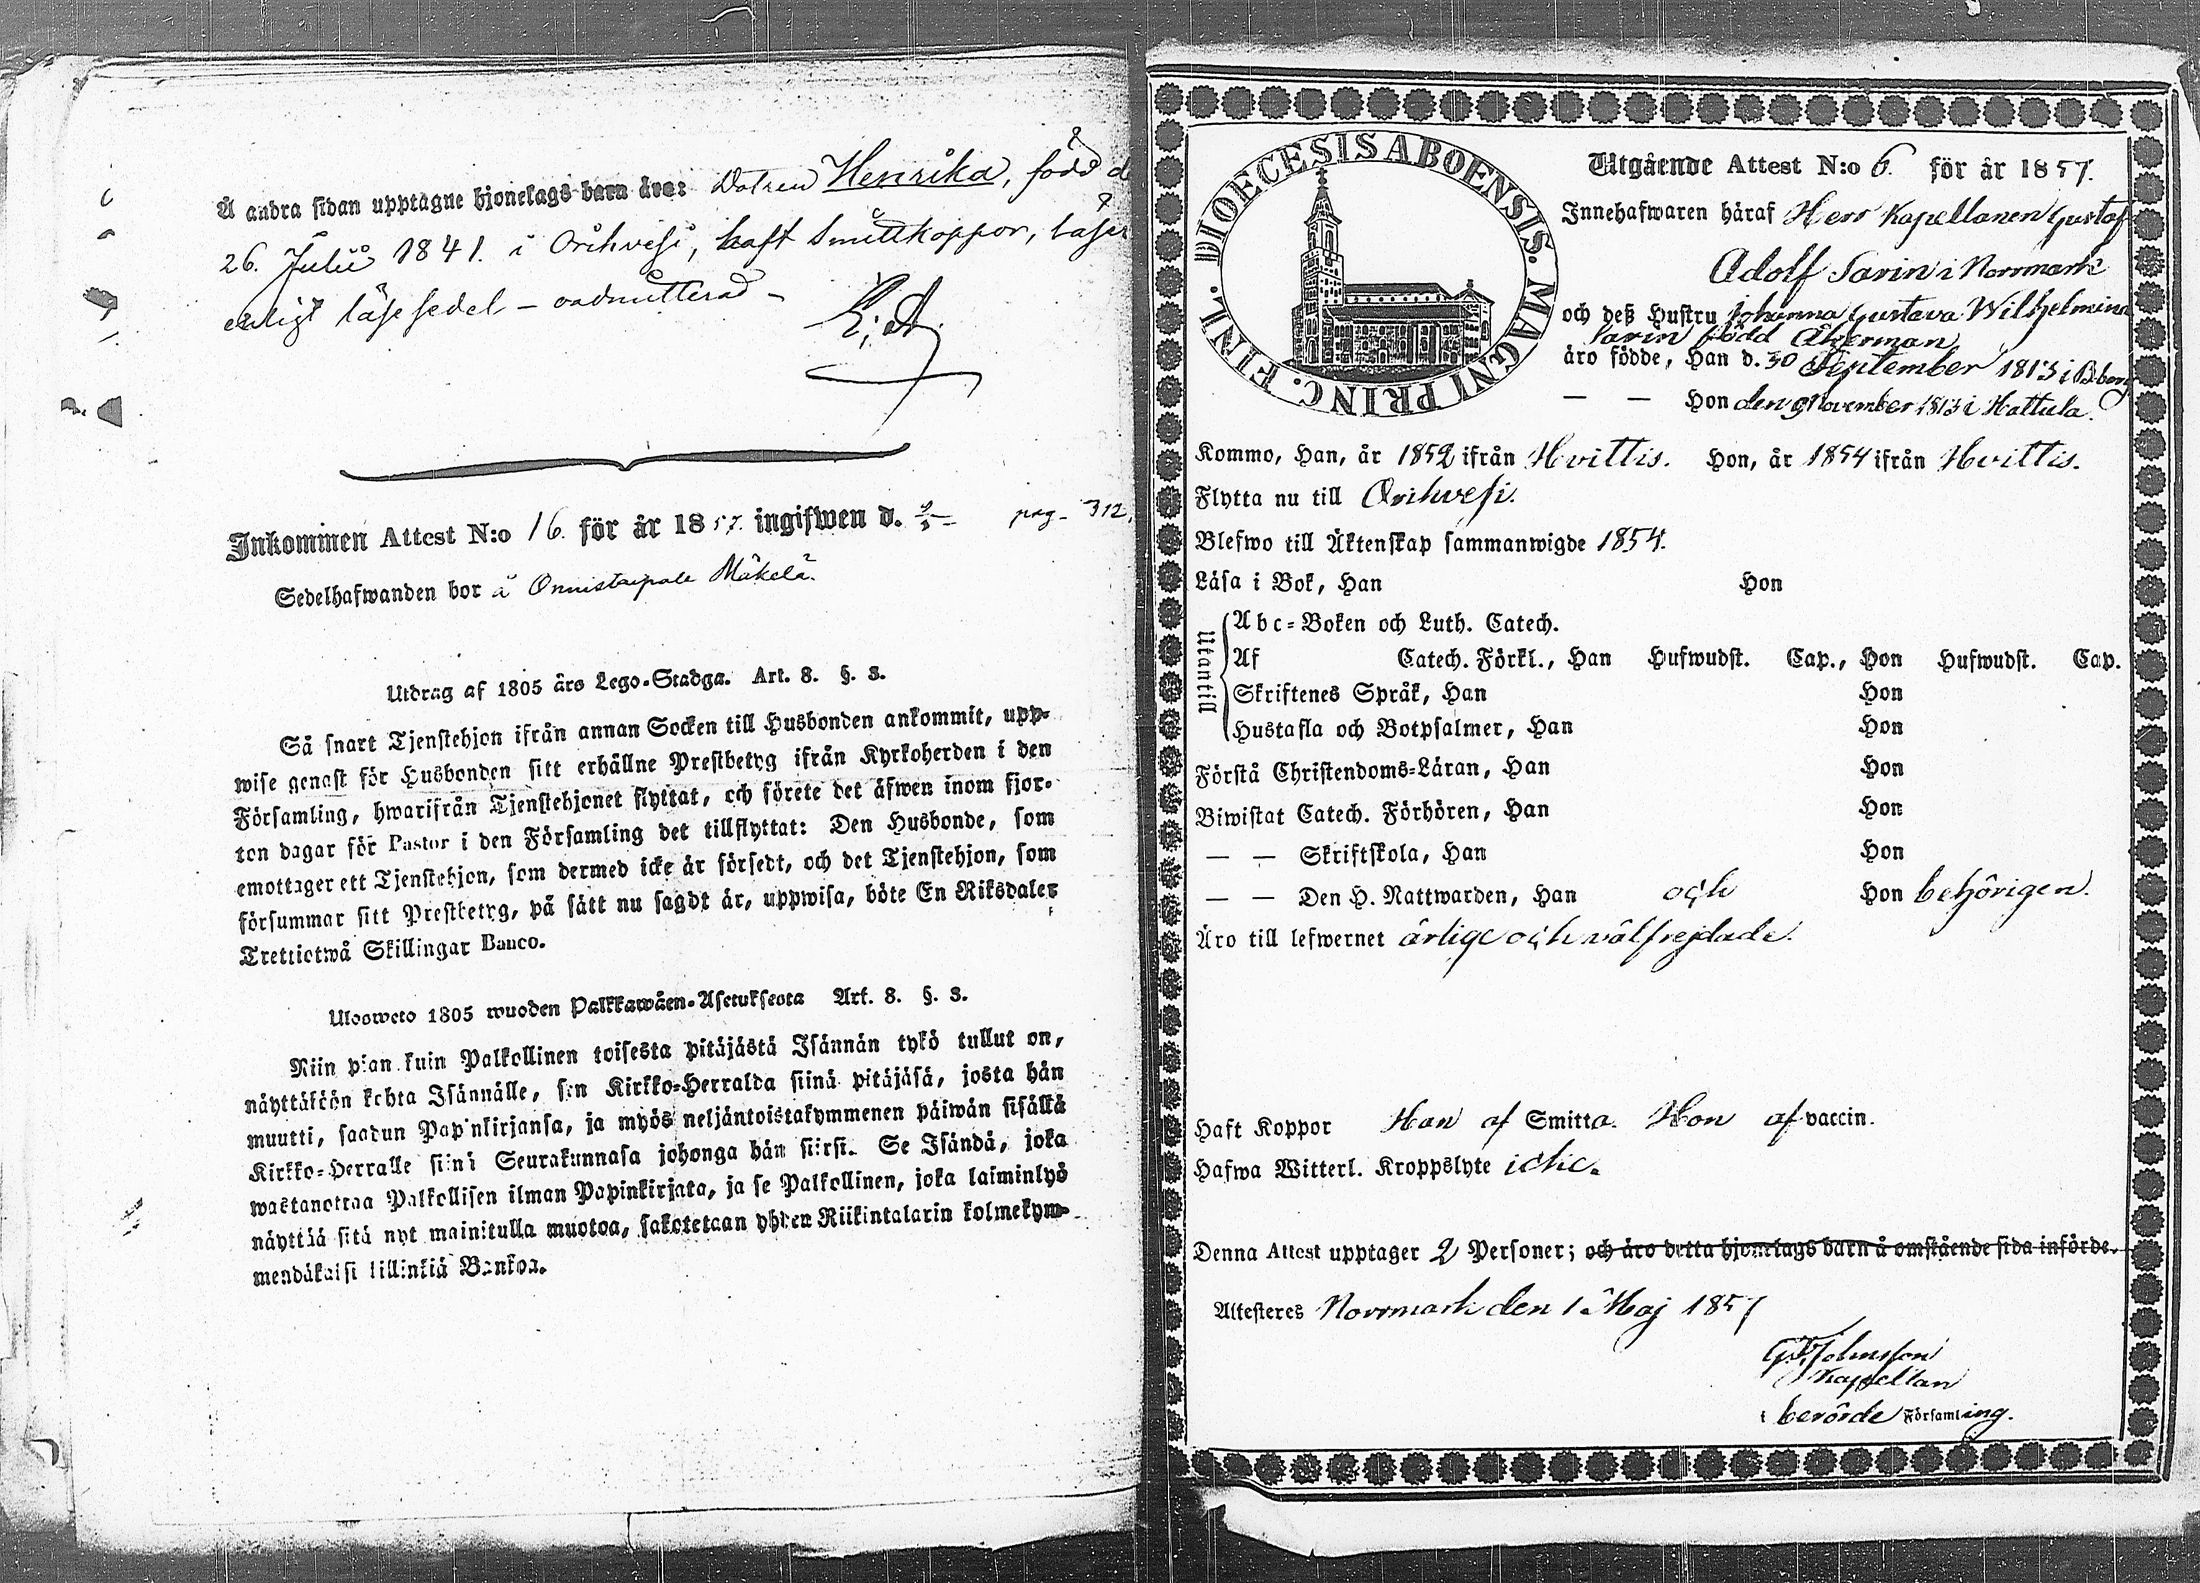 Å andra sidan upptagne hjonelags barn äro: Dotren Henrika, född d
26. Julii 1841. i Orihvesi, haft Smittkoppor, läser
enligt läsesedel – oadmitterad –
Inkommen Attest N:o 16. för år 1857. ingifwen d. pag. 312.
Sedelhafwanden bor å Onnistaipale Mäkelä.
Utdrag af 1805 års Lego-Stadga. Art. 8. §. 3.
Så snart Tjenstehjon ifrån annan Socken till Husbonden ankommit, upp-
wise genast för Husbonden sitt erhållne Prestbetyg ifrån Kyrkoherden i den
Församling, hwarifrån Tjenstehjonet flyttat, och förete det äfwen inom fjor-
ton dagar för Pastor i den Församling det tillflyttat: Den Husbonde, som
emottager ett Tjenstehjon, som dermed icke är försedt, och det Tjenstehjon, som
försummar sitt Prestbetyg, på sätt nu sagdt är, uppwisa, böte En Riksdaler
Trettiotwå Skillingar Banco.
Ulosweto 1805 wuoden Palkkawäen-Asetuksesta Art. 8. §. 3.
Niin pian kuin Palkollinen toisesta pitäjästä Isännän tykö tullut on,
näyttäköön kohta Isännälle, sen Kirkko-Herralda siinä pitäjäsä, josta hän
muutti, saadun Papinkirjansa, ja myös neljäntoistakymmenen päiwän sisällä
Kirkko-Herralle siinä Seurakunnasa johonga hän siirsi. Se Isändä, joka
wastanottaa Palkollisen ilman Papinkirjata, ja se Palkollinen, joka laiminlyö
näyttää sitä nyt mainitulla muotoa, sakotetaan yhden Riikintalarin kolmekym-
mendäkaksi killinkiä Bankoa.
DIOECESIS ABOENSIS. MAGNI PRINC. FINL.
Utgående Attest N:o 6. för år 1857.
Innehafwaren häraf Herr Kapellanen Gustaf
Adolf Sarin i Norrmark
och deß Hustru Johanna Gustava Wilhelmina
Sarin född Åkerman
äro födde, Han d. 30 September 1813 i B:borg
— — Hon den 9 November 1813 i Hattula.
Kommo, Han, år 1852 ifrån Hvittis. Hon, år 1854 ifrån Hvittis.
Flytta nu till Orihvesi.
Blefwo till Äktenskap sammanwigde 1854.
Läsa i Bok, Han Hon
Utantill
Abc-Boken och Luth. Catech.
Af Catech. Förkl., Han Hufwudst. Cap., Hon Hufwudst. Cap.
Skriftenes Språk, Han Hon
Hustafla och Botpsalmer, Han Hon
Förstå Christendoms-Läran, Han Hon
Biwistat Catech. Förhören, Han Hon
— — Skriftskola, Han Hon
— — Den H. Nattwarden, Han och Hon behörigen.
Äro till lefwernet ärlige och välfrejdade.
Haft Koppor Han af Smitta. Hon af vaccin.
Hafwa Witterl. Kroppslyte icke.
Denna Attest upptager 2 Personer; och äro detta hjonelags barn å omstående sida införde.
Attesteres Norrmark den 1 Maj 1857
G. F. Johnsson
Kapellan
i berörde Församling.